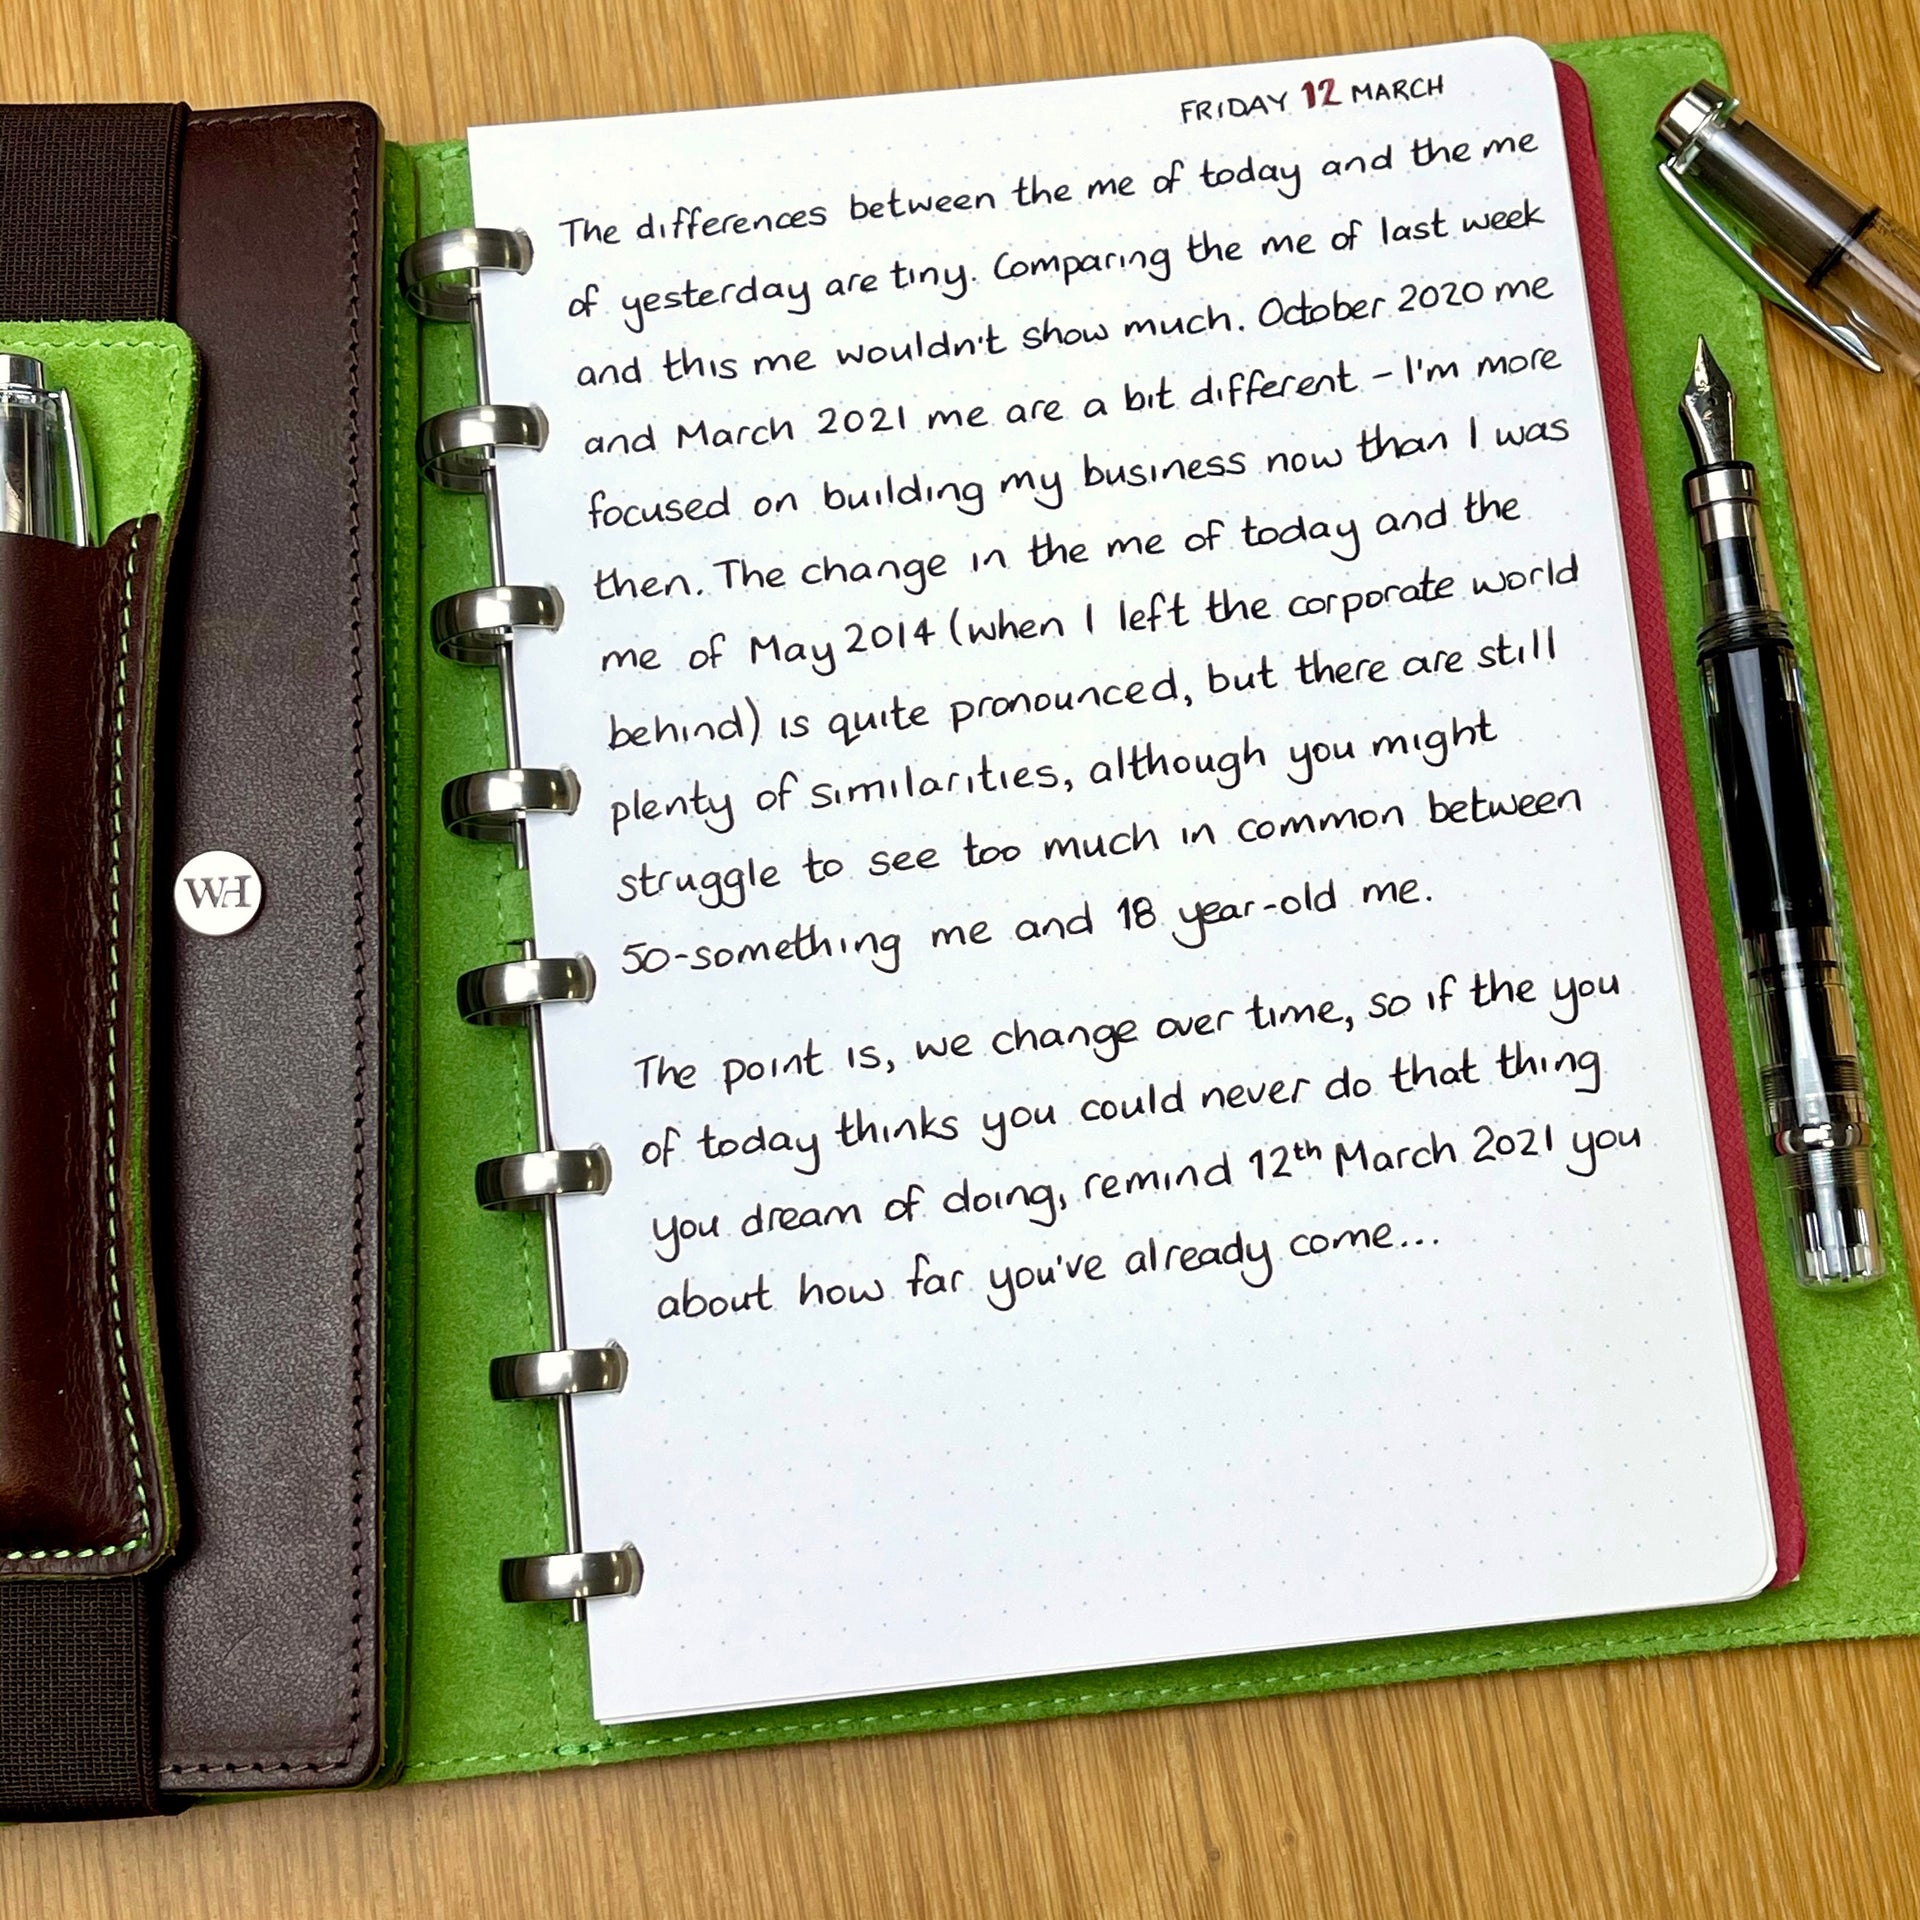 FRIDAY 12 MARCH
The differences between the me of today and the me
of yesterday are tiny. Comparing the me of last week
and this me wouldn't show much. October 2020 me
and March 2021 me are a bit different - I'm more
focused on building my business now than I was
then. The change in the me of today and the
me of May 2014 (when I left the corporate world
behind) is quite pronounced, but there are still
plenty of similarities, although you might
struggle to see too much in common between
50-something me and 18 year-old me.
The point is, we change over time, so if the you
of today thinks you could never do that thing
you dream of doing, remind 12th March 2021 you
about how far you've already come...
WH